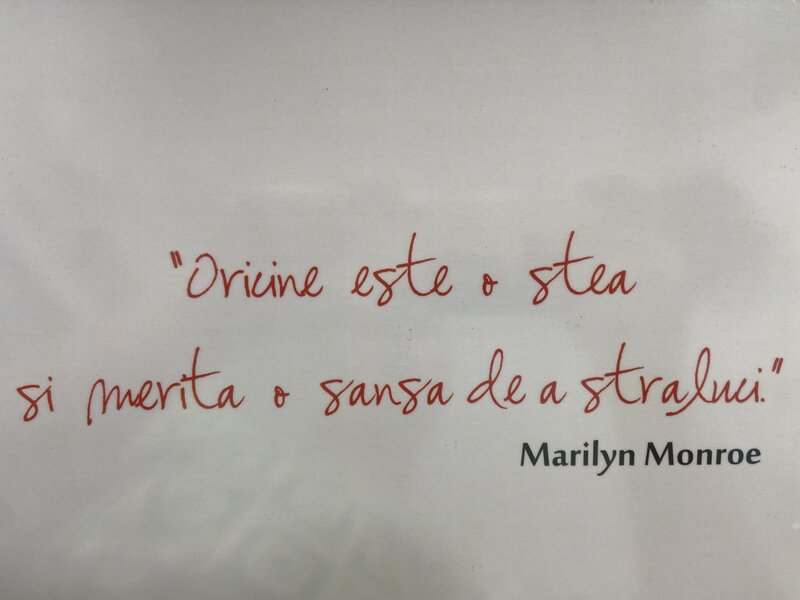 "Oricine este o stea
si merita o sansa de a straluci."
Marilyn Monroe